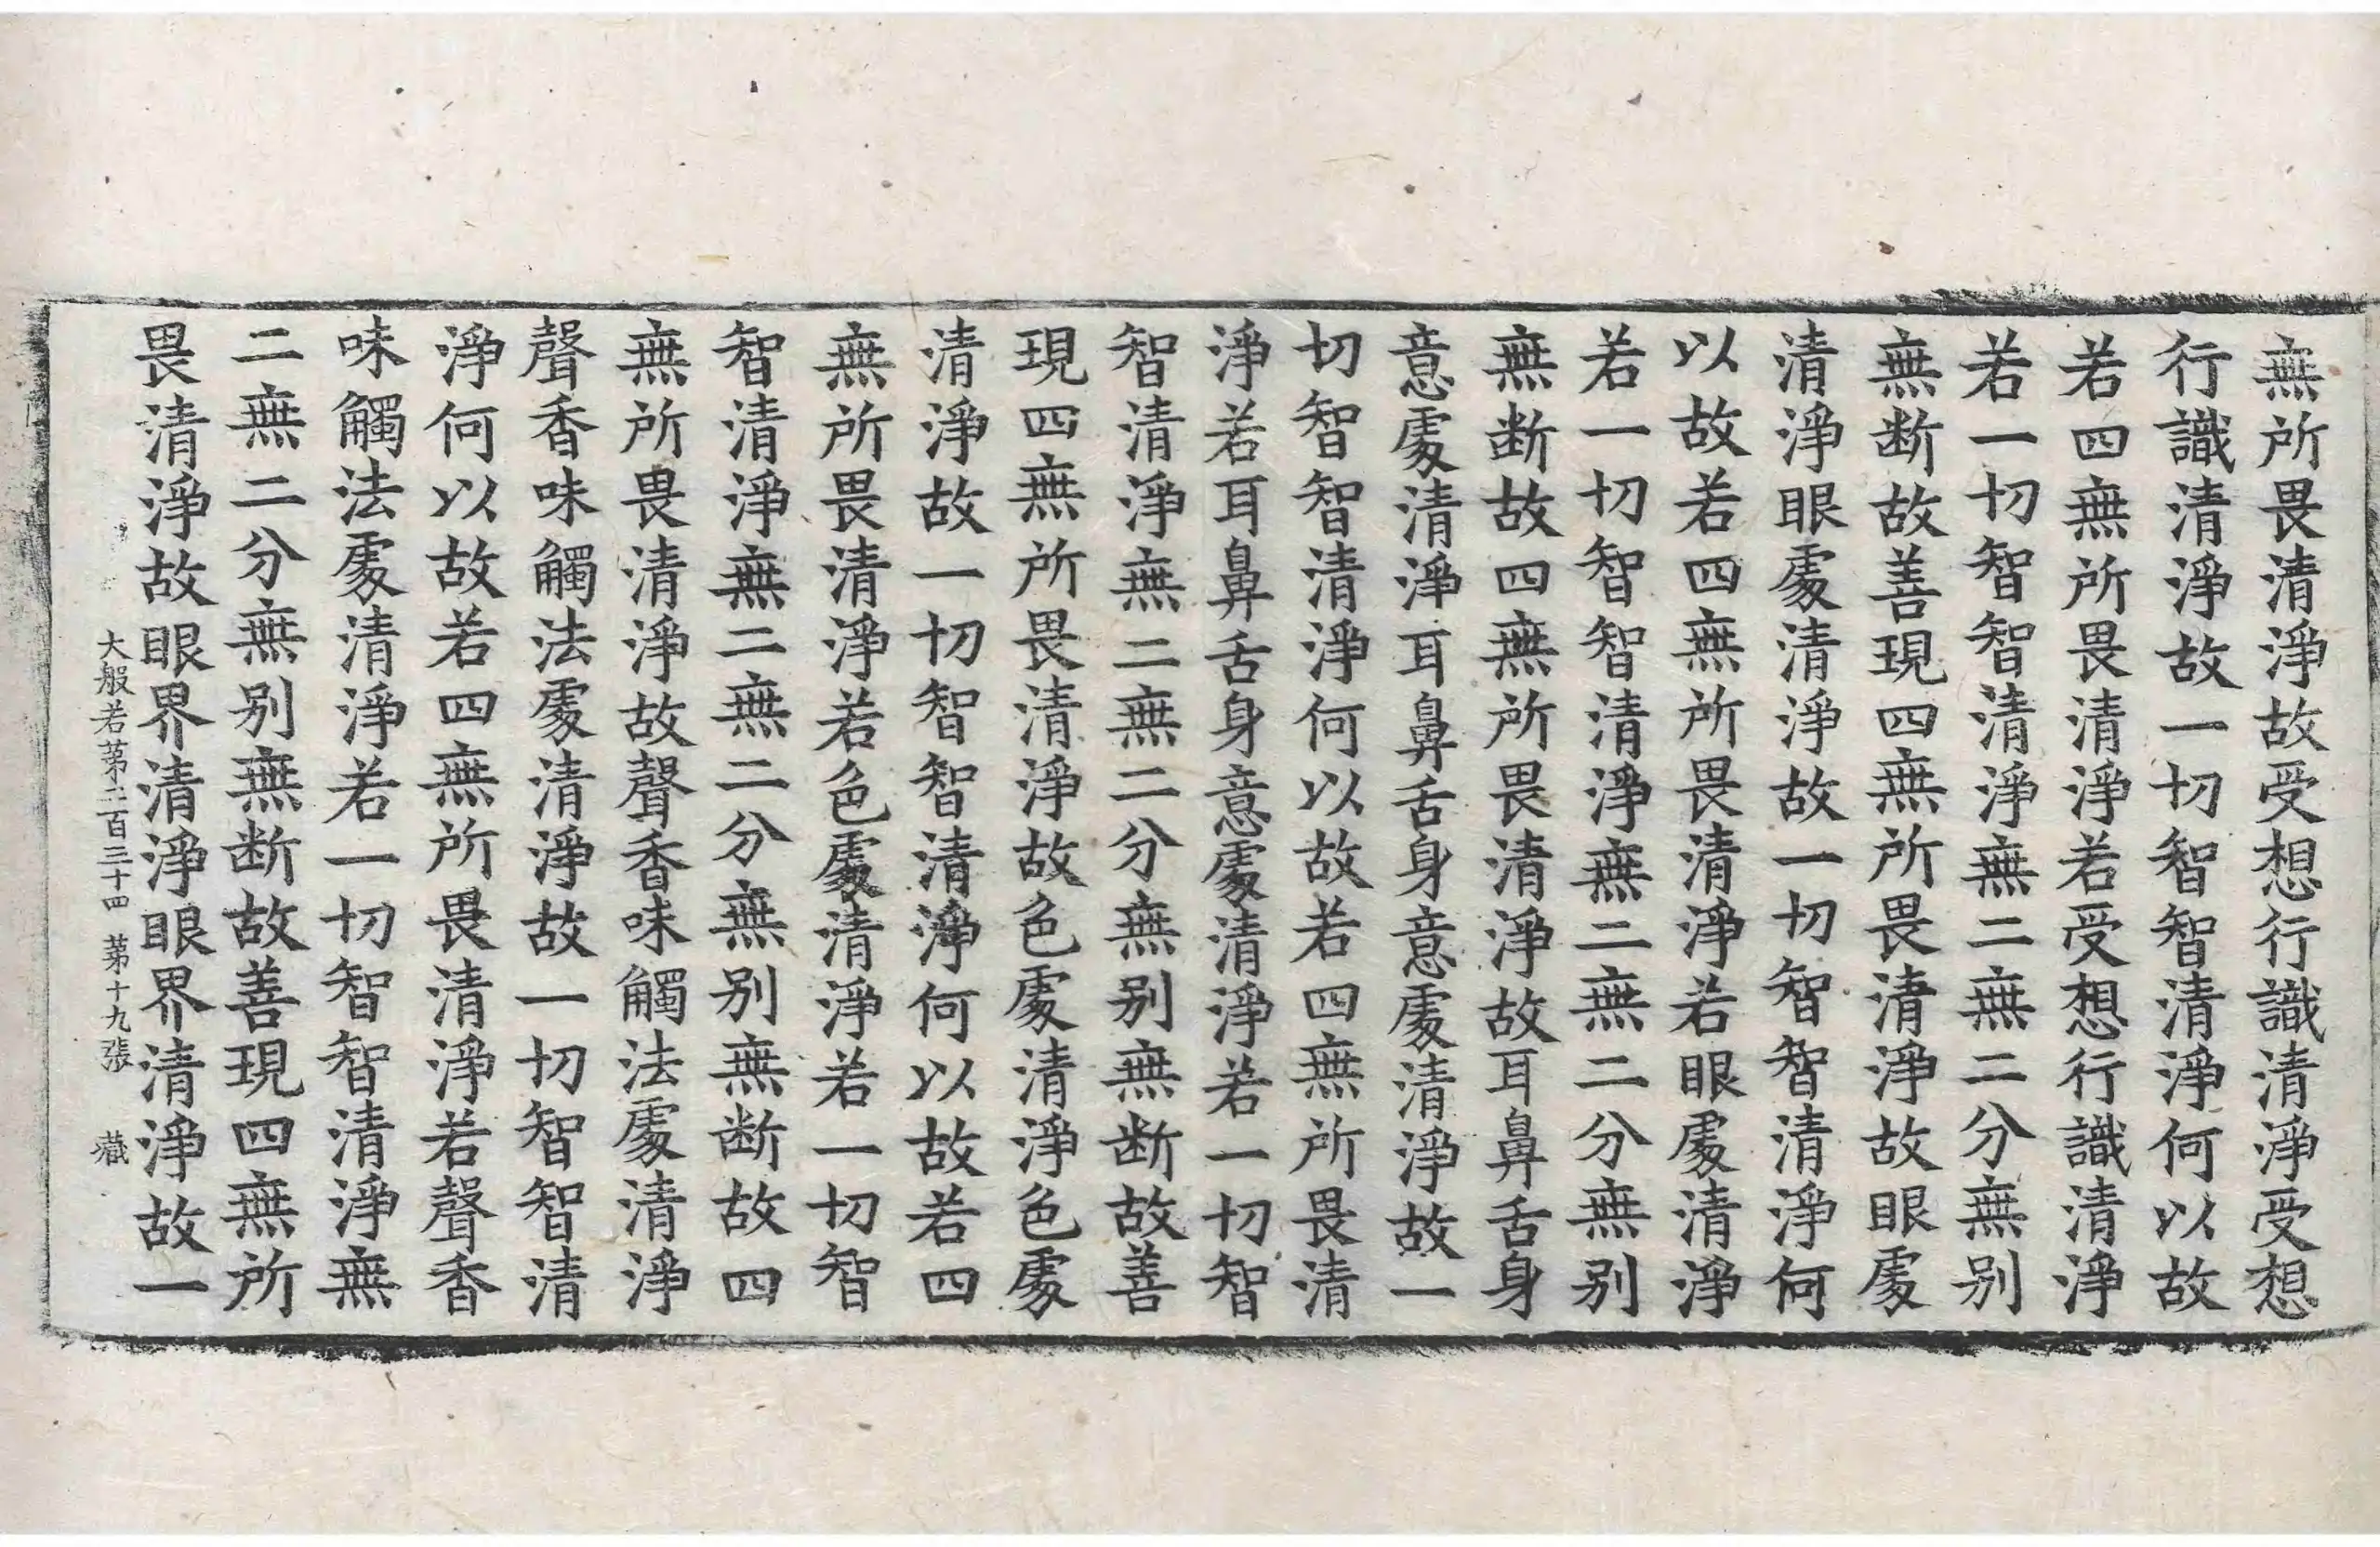 無所畏清淨故受想行識清淨受想
行識清淨故一切智智清淨何以故
若四無所畏清淨若受想行識清淨
若一切智智清淨無二無二分無别
無断故善現四無所畏清淨故眼處
清淨眼處清淨故一切智智清淨何
以故若四無所畏清淨若眼處清淨
若一切智智清淨無二無二分無别
無断故四無所畏清淨故耳鼻舌身
意處清淨耳鼻舌身意處清淨故一
切智智清淨何以故若四無所畏清
淨若耳鼻舌身意處清淨若一切智
智清淨無二無二分無别無断故善
現四無所畏清淨故色處清淨色處
清淨故一切智智清淨何以故若四
無所畏清淨若色處清淨若一切智
智清淨無二無二分無别無断故四
無所畏清淨故聲香味觸法處清淨
聲香味觸法處清淨故一切智智清
淨何以故若四無所畏清淨若聲香
味觸法處清淨若一切智智清淨無
二無二分無别無断故善現四無所
畏清淨故眼界清淨眼界清淨故一
大般若苐二百三十四 苐十九張 藏